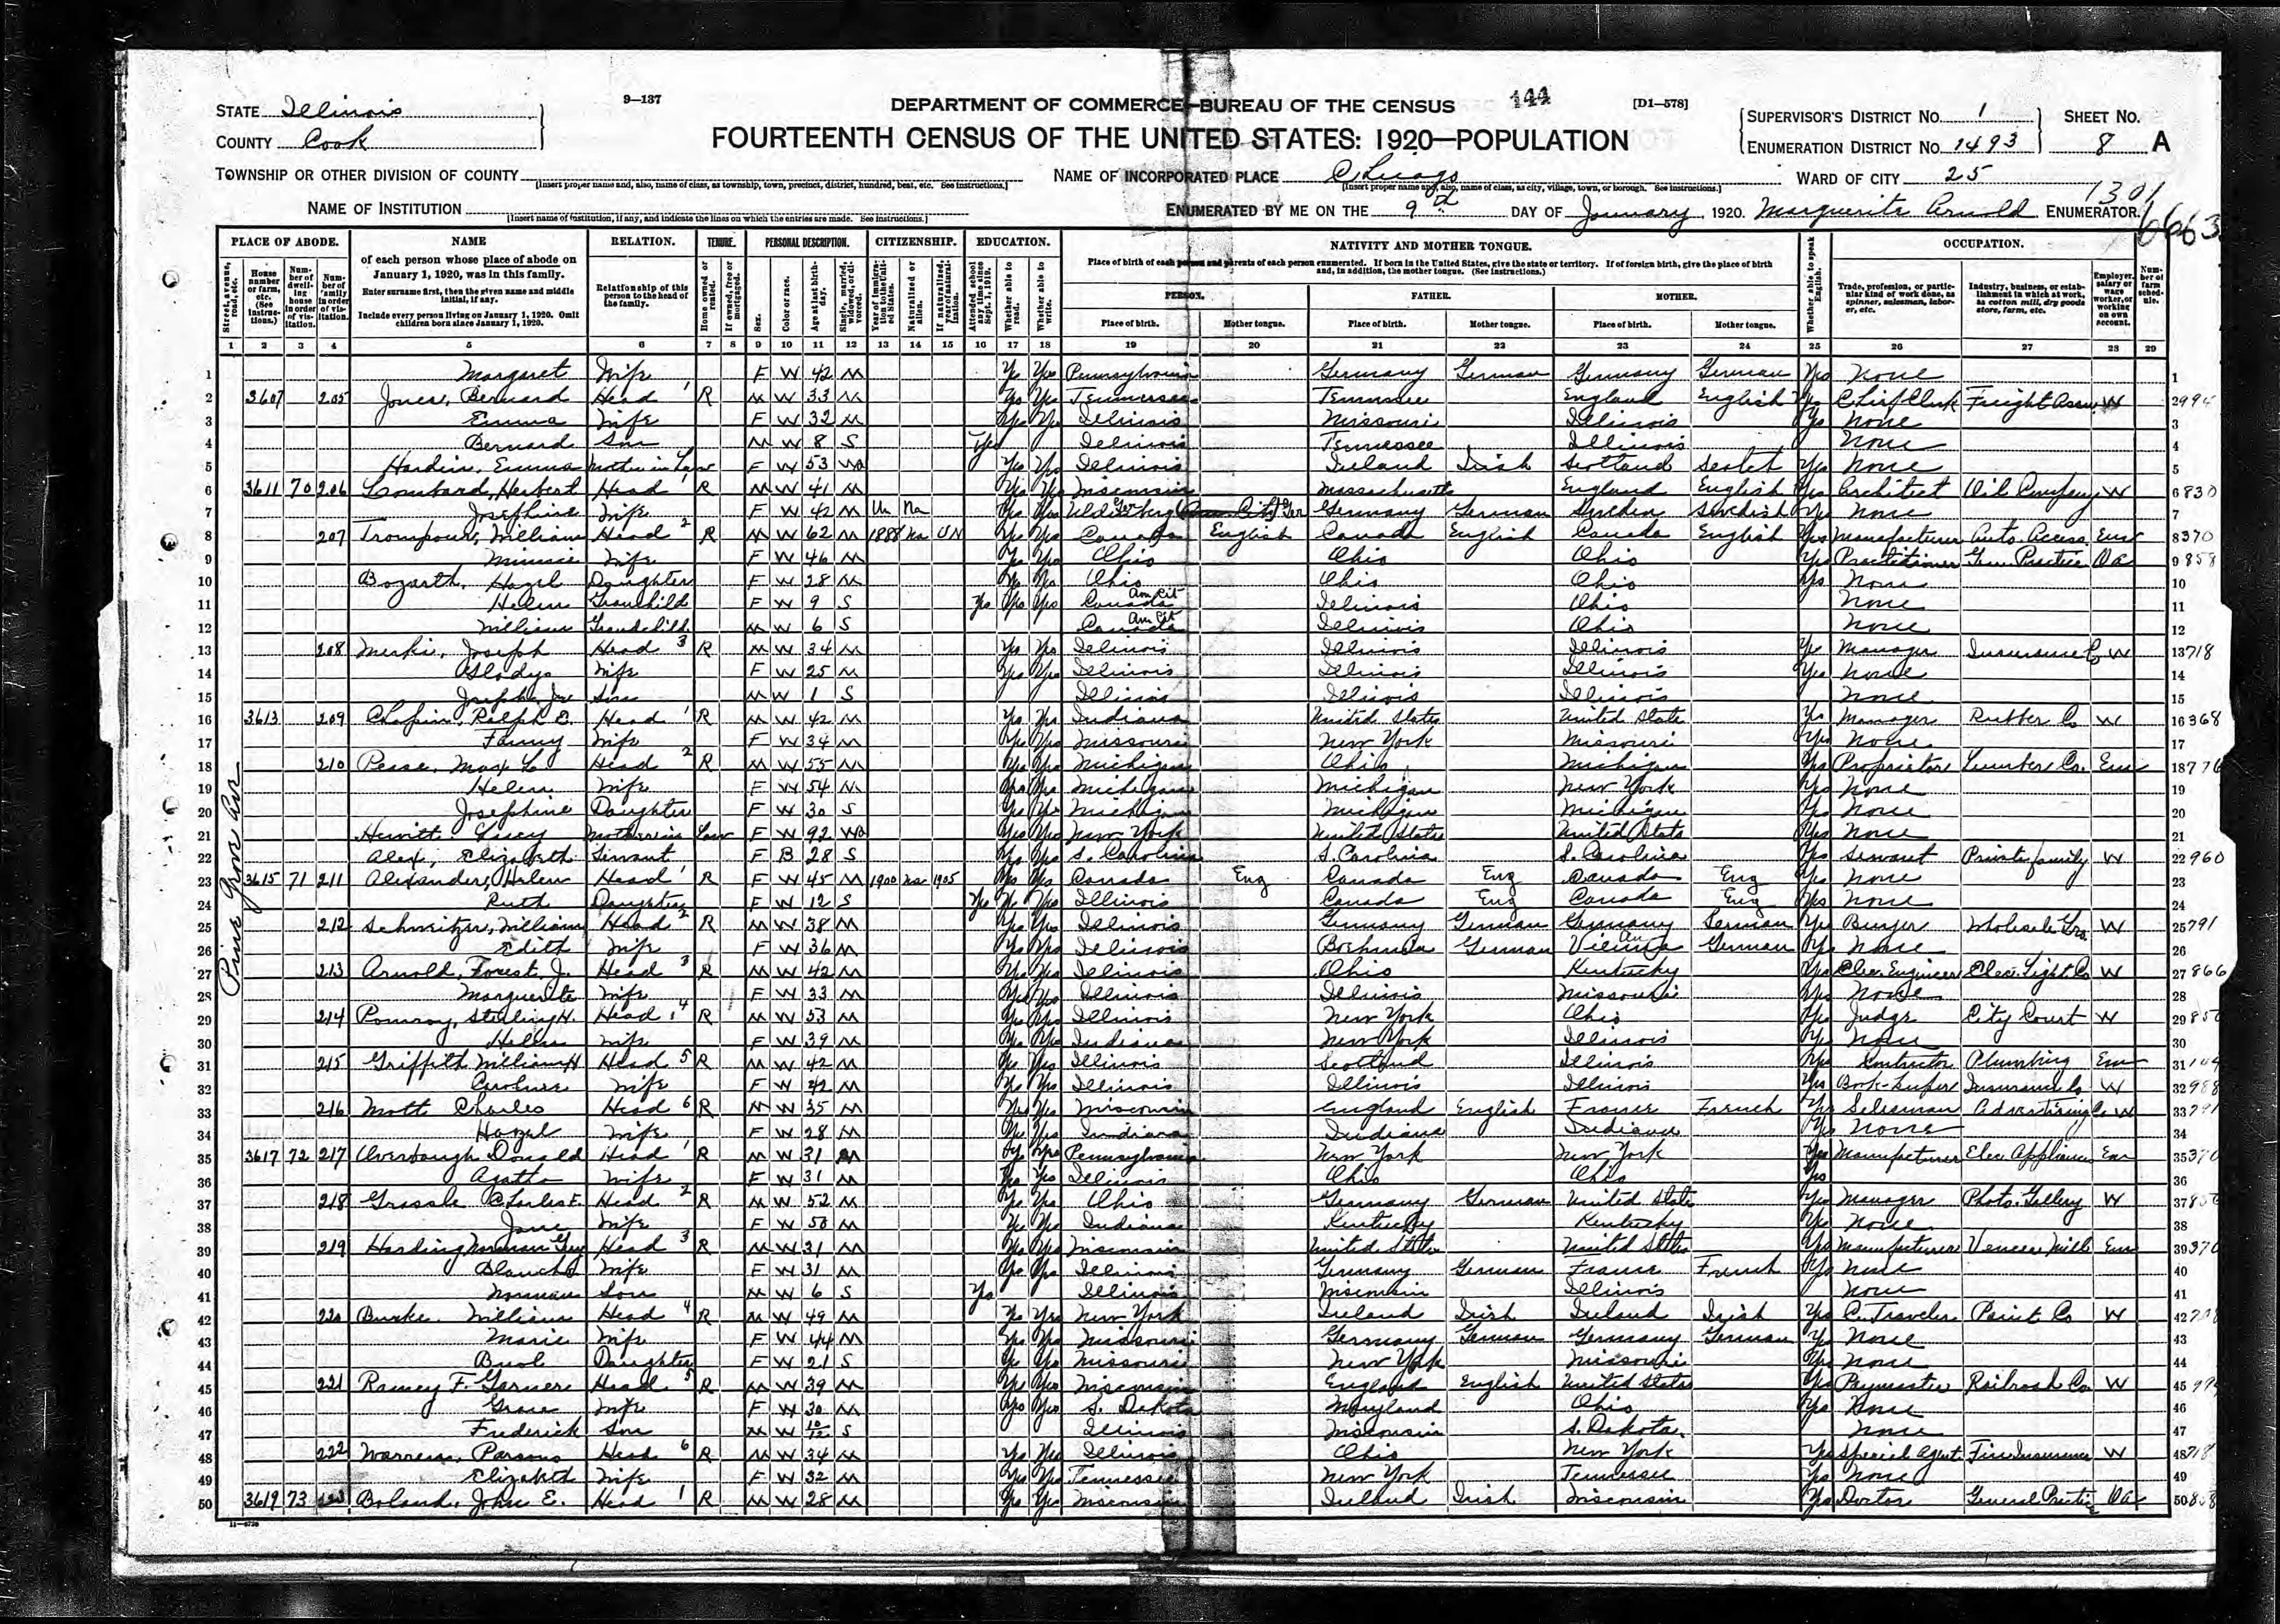 9—137
DEPARTMENT OF COMMERCE—BUREAU OF THE CENSUS
144
[D1—578]
STATE Illinois
COUNTY Cook
FOURTEENTH CENSUS OF THE UNITED STATES: 1920—POPULATION
SUPERVISOR'S DISTRICT No. 1
ENUMERATION DISTRICT No. 1493
SHEET No. 8 A
TOWNSHIP OR OTHER DIVISION OF COUNTY
[Insert proper name and, also, name of class, as township, town, precinct, district, hundred, beat, etc. See instructions.]
NAME OF INCORPORATED PLACE Chicago
[Insert proper name and, also, name of class, as city, village, town, or borough. See instructions.]
WARD OF CITY 25
1301
NAME OF INSTITUTION
[Insert name of institution, if any, and indicate the lines on which the entries are made. See instructions.]
ENUMERATED BY ME ON THE 9th DAY OF January, 1920. Marguerite Arnold ENUMERATOR.
6663
PLACE OF ABODE. NAME RELATION. TENURE. PERSONAL DESCRIPTION. CITIZENSHIP. EDUCATION. NATIVITY AND MOTHER TONGUE. OCCUPATION.
of each person whose place of abode on January 1, 1920, was in this family.
Enter surname first, then the given name and middle initial, if any.
Include every person living on January 1, 1920. Omit children born since January 1, 1920.
Relationship of this person to the head of the family.
Place of birth of each person and parents of each person enumerated. If born in the United States, give the state or territory. If of foreign birth, give the place of birth and, in addition, the mother tongue. (See instructions.)
PERSON. FATHER. MOTHER.
Place of birth. Mother tongue. Place of birth. Mother tongue. Place of birth. Mother tongue.
1 2 3 4 5 6 7 8 9 10 11 12 13 14 15 16 17 18 19 20 21 22 23 24 25 26 27 28 29
Pine Grove Av
1 Margaret Wife F W 42 M Yes Yes Pennsylvania Germany German Germany German Yes None 1
2 3607 205 Jones, Bernard Head 1 R M W 33 M Yes Yes Tennessee Tennessee England English Yes Chief Clerk Freight Assn W 2
3 Emma Wife F W 32 M Yes Yes Illinois Missouri Illinois Yes None 3
4 Bernard Son M W 8 S Yes Illinois Tennessee Illinois None 4
5 Hardin, Emma Mother in Law F W 53 Wd Yes Yes Illinois Ireland Irish Scotland Scotch Yes None 5
6 3611 70 206 Lombard, Herbert Head 1 R M W 41 M Yes Yes Wisconsin Massachusetts England English Yes Architect Oil Company W 6 830
7 Josephine Wife F W 42 M Un Na Yes Yes Germany German Sweden Swedish Yes None 7
8 207 Trompour, William Head 2 R M W 62 M 1888 Na UN Yes Yes Canada English Canada English Canada English Yes Manufacturer Auto Access. Em 8 370
9 Minnie Wife F W 46 M Yes Yes Ohio Ohio Ohio Yes Practitioner Gen. Practice Oa 9 858
10 Bogarth, Hazel Daughter F W 28 M Yes Yes Ohio Ohio Ohio Yes None 10
11 Helen Granchild F W 9 S Yes Yes Yes Canada Am Cit Illinois Ohio None 11
12 William Grandchild M W 6 S Canada Am Cit Illinois Ohio None 12
13 208 Merki, Joseph Head 3 R M W 34 M Yes Yes Illinois Illinois Illinois Yes Manager Insurance Co W 13 718
14 Gladys Wife F W 25 M Yes Yes Illinois Illinois Illinois Yes None 14
15 Joseph, Jr Son M W 1 S Illinois Illinois Illinois None 15
16 3613 209 Chapin, Ralph E. Head 1 R M W 42 M Yes Yes Indiana United States United State Yes Manager Rubber Co W 16 368
17 Fanny Wife F W 34 M Yes Yes Missouri New York Missouri Yes None 17
18 210 Pease, Max L Head 2 R M W 55 M Yes Yes Michigan Ohio Michigan Yes Proprietor Lumber Co. Em 18 776
19 Helen Wife F W 54 M Yes Yes Michigan Michigan New York Yes None 19
20 Josephine Daughter F W 30 S Yes Yes Michigan Michigan Michigan Yes None 20
21 Hewitt Lucy Mother in Law F W 92 Wd Yes Yes New York United States United State Yes None 21
22 Alex, Elizabeth Servant F B 28 S Yes Yes S. Carolina S. Carolina S. Carolina Yes Servant Private family W 22 960
23 3615 71 211 Alexander, Helen Head 1 R F W 45 M 1900 Na 1905 Yes Yes Canada Eng Canada Eng Canada Eng Yes None 23
24 Ruth Daughter F W 12 S Yes Yes Yes Illinois Canada Eng Canada Eng Yes None 24
25 212 Schweitzer, William Head 2 R M W 38 M Yes Yes Illinois Germany German Germany German Yes Buyer Wholesale Gro. W 25 791
26 Edith Wife F W 36 M Yes Yes Illinois Bohemia German Vienna Au German Yes None 26
27 213 Arnold, Forest J. Head 3 R M W 42 M Yes Yes Illinois Ohio Kentucky Yes Elec. Engineer Elec. Light Co W 27 866
28 Marguerite Wife F W 33 M Yes Yes Illinois Illinois Missouri Yes None 28
29 214 Pomroy, Sterling H. Head 4 R M W 53 M Yes Yes Illinois New York Ohio Yes Judge City Court W 29
30 Helen Wife F W 39 M Yes Yes Indiana New York Illinois Yes None 30
31 215 Griffith William H Head 5 R M W 42 M Yes Yes Illinois Scotland Illinois Yes Contractor Plumbing Em 31
32 Caroline Wife F W 42 M Yes Yes Illinois Illinois Illinois Yes Book-keeper Insurance Co W 32 988
33 216 Mott Charles Head 6 R M W 35 M Yes Yes Wisconsin England English France French Yes Salesman Advertising Co W 33
34 Hazel Wife F W 28 M Yes Yes Indiana Indiana Indiana Yes None 34
35 3617 72 217 Overbaugh Donald Head 1 R M W 31 M Yes Yes Pennsylvania New York New York Yes Manufacturer Elec. Appliances Em 35 370
36 Agatha Wife F W 31 M Yes Yes Illinois Ohio Ohio Yes 36
37 218 Grassle Charles F. Head 2 R M W 52 M Yes Yes Ohio Germany German United State Yes Manager Photo. Gallery W 37
38 Jane Wife F W 50 M Yes Yes Indiana Kentucky Kentucky Yes None 38
39 219 Harding Norman Guy Head 3 R M W 31 M Yes Yes Wisconsin United State United States Yes Manufacturer Veneer Mill Em 39 370
40 Blanche Wife F W 31 M Yes Yes Illinois Germany German France French Yes None 40
41 Norman Son M W 6 S Yes Illinois Wisconsin Illinois None 41
42 220 Burke William Head 4 R M W 49 M Yes Yes New York Ireland Irish Ireland Irish Yes C. Traveler Paint Co W 42
43 Marie Wife F W 44 M Yes Yes Missouri Germany German Germany German Yes None 43
44 Daughter F W 21 S Yes Yes Missouri New York Missouri Yes None 44
45 221 Ramey F. Garner Head 5 R M W 39 M Yes Yes Wisconsin England English United States Yes Paymaster Railroad Co W 45
46 Grace Wife F W 30 M Yes Yes S. Dakota Maryland Ohio Yes None 46
47 Frederick Son M W 10/12 S Illinois Wisconsin S. Dakota None 47
48 222 Warren, Parsons Head 6 R M W 34 M Yes Yes Illinois Ohio New York Yes Special Agent Fire Insurance W 48 718
49 Elizabeth Wife F W 32 M Yes Yes Tennessee New York Tennessee Yes None 49
50 3619 73 Boland, John E. Head 1 R M W 28 M Yes Yes Wisconsin Ireland Irish Wisconsin Yes Doctor General Practice Oa 50
11—6726